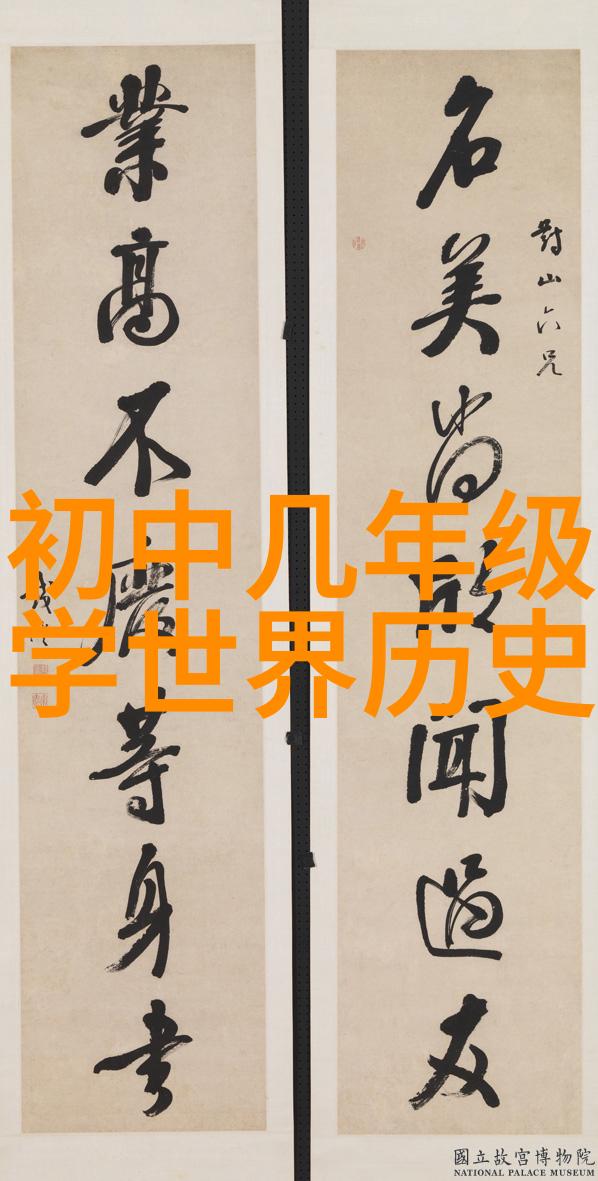 對山六兄
名美尚欣聞過友
業高不廢等身書
初中几年级
学世界历史
國立故宮博物院
NATIONAL PALACE MUSEUM